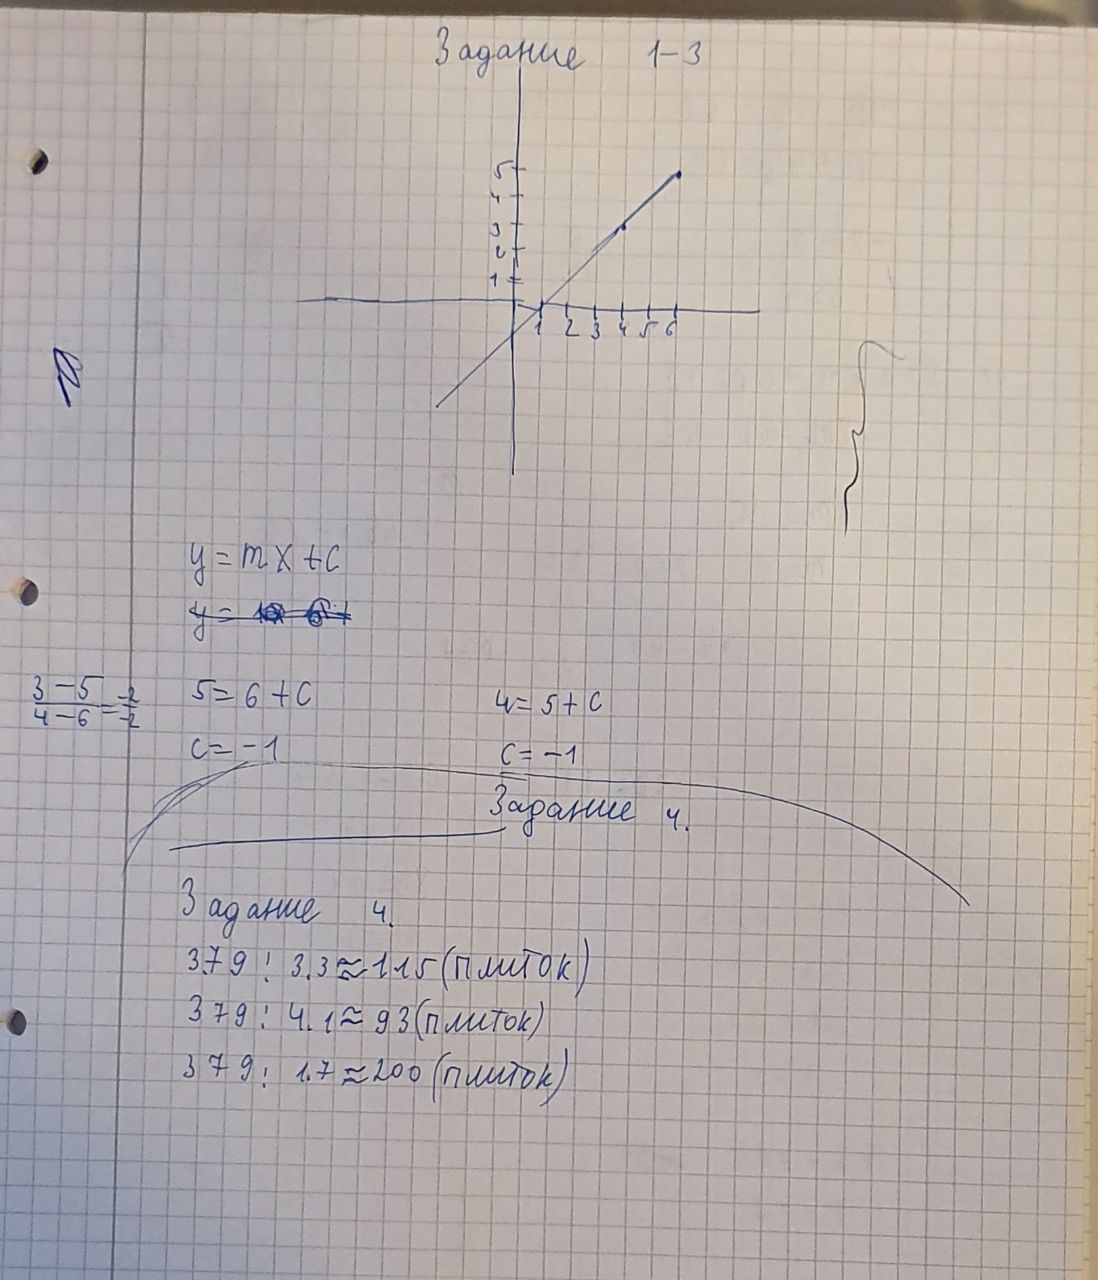 Задание 1-3
5
4
3
2
1
1 2 3 4 5 6
y = mx + c
y =
3-5/4-6 = -2/-2
5 = 6 + c
4 = 5 + c
c = -1
c = -1
Задание 4.
Задание 4.
379 : 3.3 ≈ 115 (плиток)
379 : 4.1 ≈ 93 (плиток)
379 : 1.7 ≈ 200 (плиток)